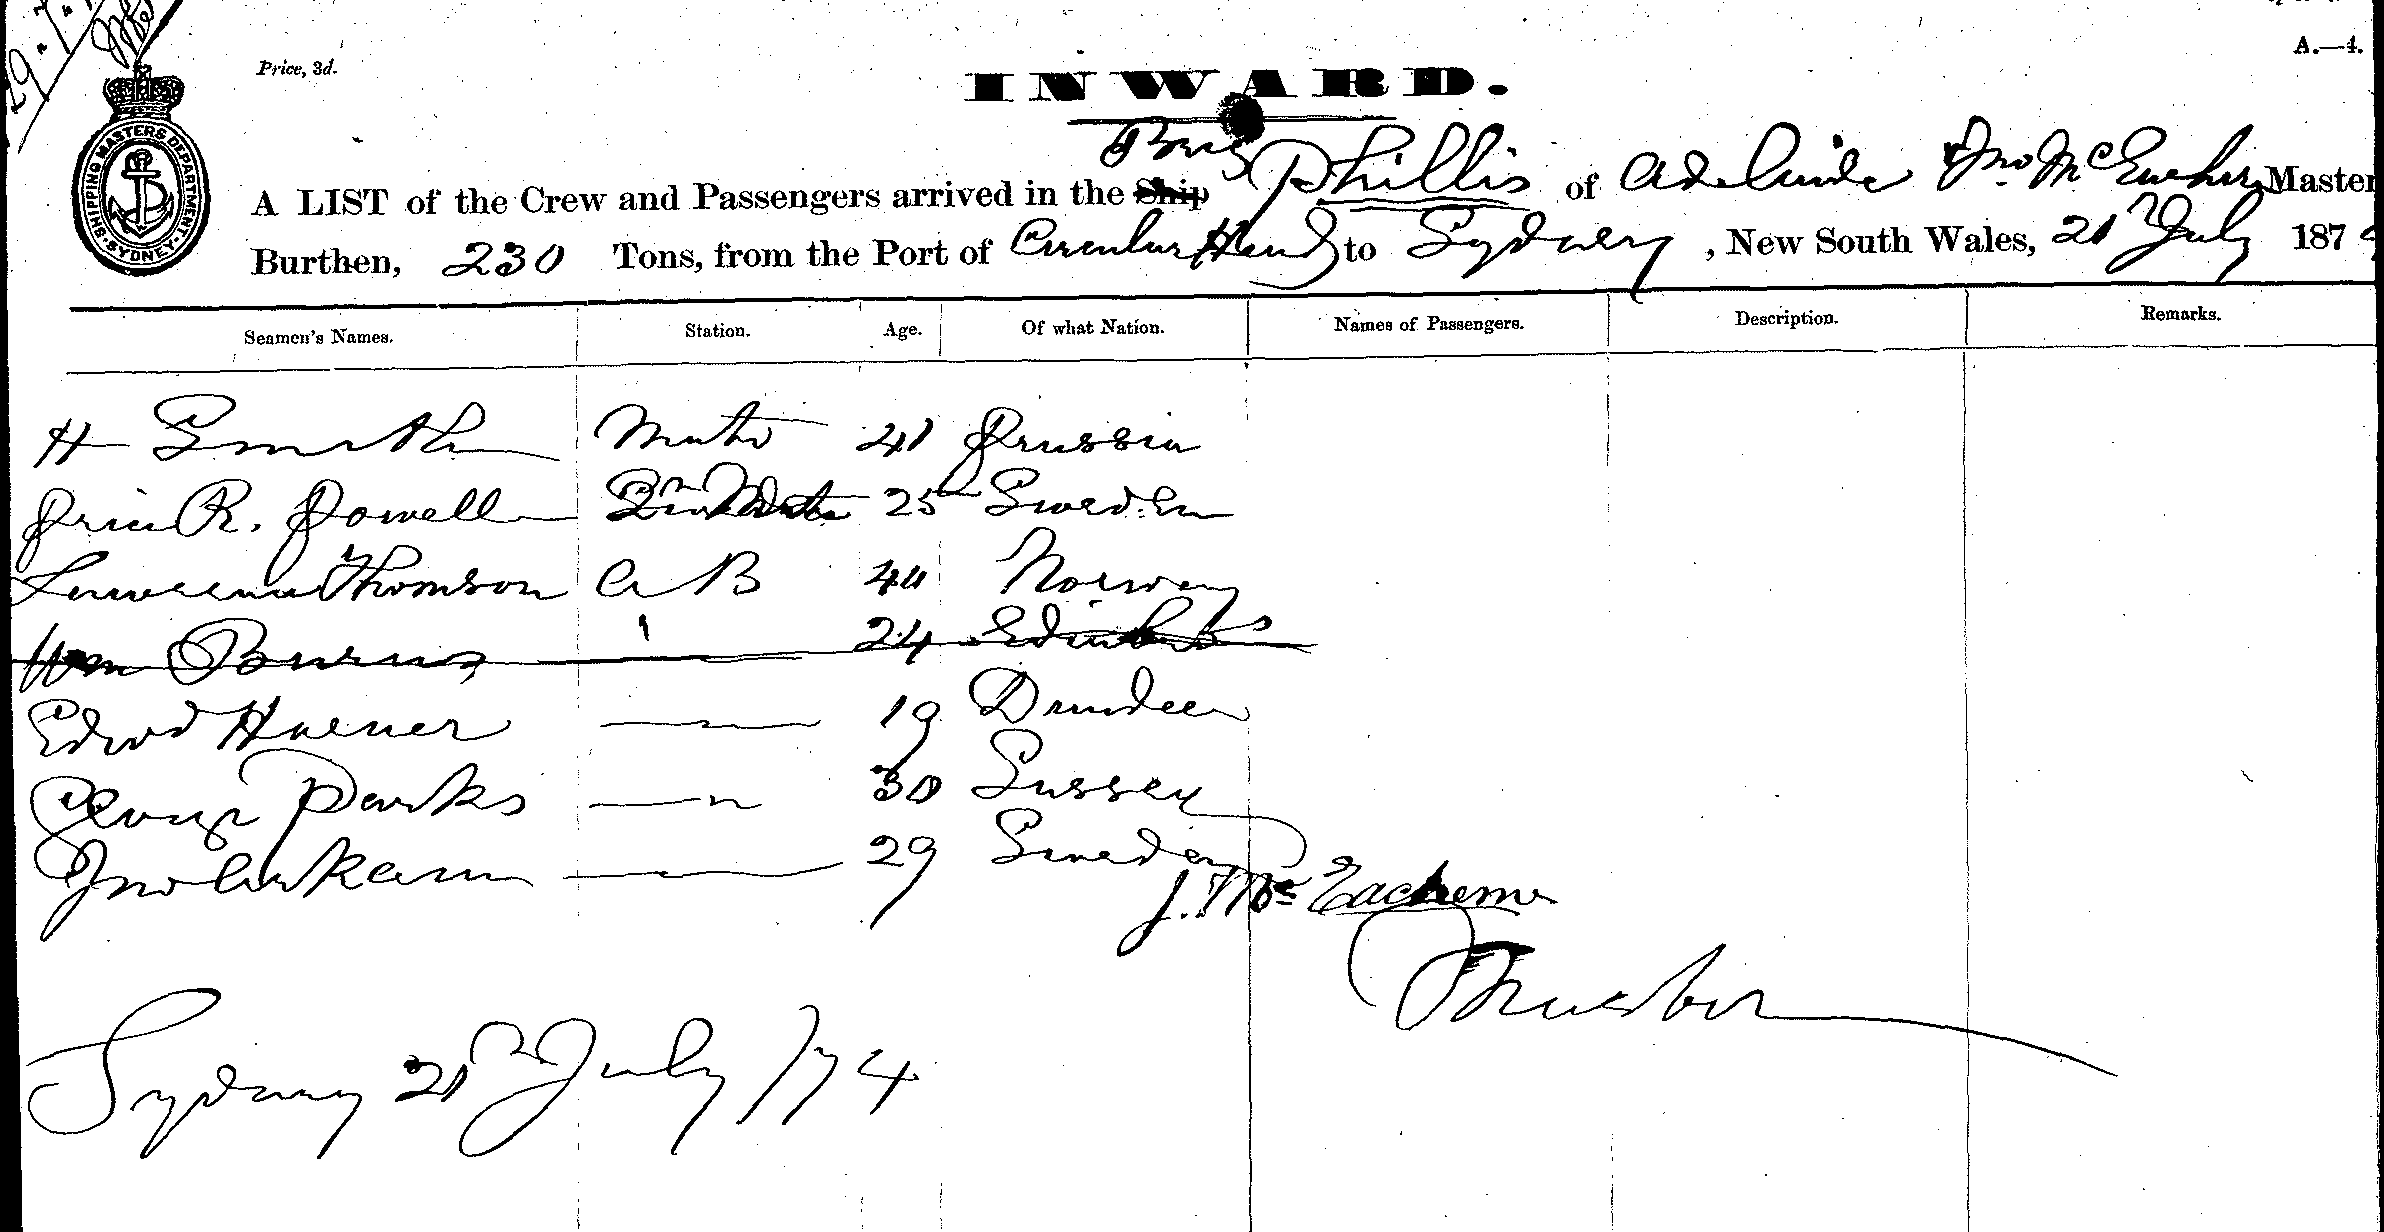 Price, 3d.
A.—4.
INWARD.
SHIPPING MASTERS DEPARTMENT SYDNEY
Brig
A LIST of the Crew and Passengers arrived in the Ship Phillis of Adelaide Jno. McEachern Master
Burthen, 230 Tons, from the Port of Circular Head to Sydney, New South Wales, 21 July 1874
Seamen's Names. Station. Age. Of what Nation. Names of Passengers. Description. Remarks.
H Smith Mate 41 Prussia
R. Powell Mate 25 Sweden
Lawrence Thomson A B 40 Norway
Wm Burns " 24 Edinbh
Edwd Horner — 19 Dundee
George Parks — " 30 Sussex
Jno — 29 Sweden
J. McEachern
Master
Sydney 21 July /74